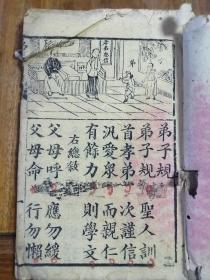 弟
弟子規
弟子規 聖人訓
首孝弟 次謹信
汎愛眾 而親仁
有餘力 則學文
右總敘
父母呼 應勿緩
父母命 行勿懶